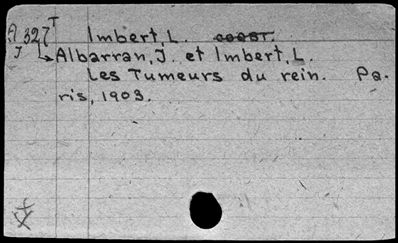 A 327 T Imbert, L.
J Albarran, J. et Imbert, L.
Les Tumeurs du rein. Pa-
ris, 1903.